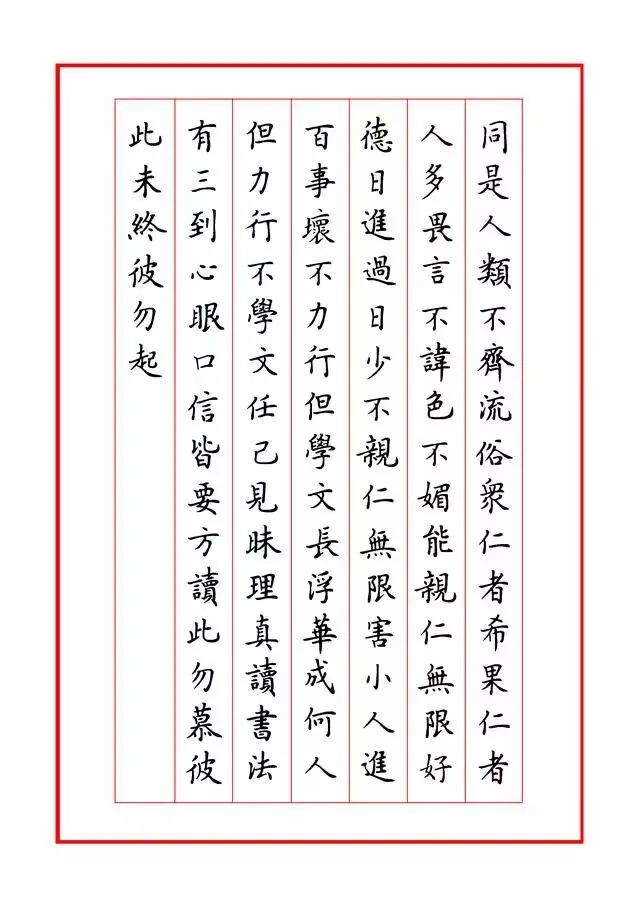 同是人類不齊流俗衆仁者希果仁者
人多畏言不諱色不媚能親仁無限好
德日進過日少不親仁無限害小人進
百事壞不力行但學文長浮華成何人
但力行不學文任己見昧理真讀書法
有三到心眼口信皆要方讀此勿慕彼
此未終彼勿起